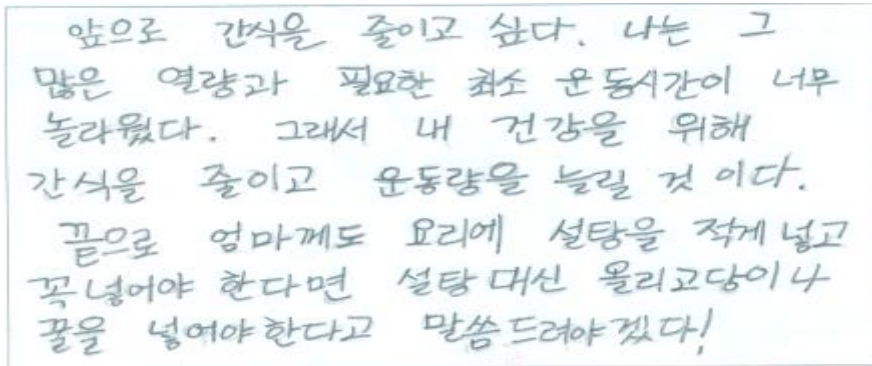 앞으로 간식을 줄이고 싶다. 나는 그
많은 열량과 필요한 최소 운동시간이 너무
놀라웠다. 그래서 내 건강을 위해
간식을 줄이고 운동량을 늘릴 것 이다.
끝으로 엄마께도 요리에 설탕을 적게 넣고
꼭 넣어야 한다면 설탕 대신 올리고당이나
꿀을 넣어야한다고 말씀드려야겠다!